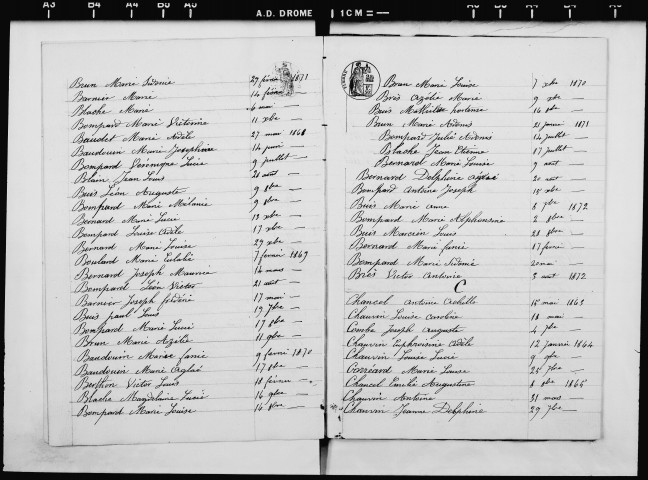 A3 B4 A4 B5 A5 A.D. DROME 1 CM A5 B5 A4 B4 A3
Brun Marie Sidonie 27 février 1871
Barnier Marie 14 février —
Blache Marie 6 mai —
Bompard Marie Victorine 11 xbre —
Baudet Marie Adèle 27 mai 1868
Baudouin Marie Joséphine 14 juin —
Bompard Véronique Lucie 9 juillet —
Blain Jean Louis 21 aout —
Buis Léon Auguste 9 8bre —
Bompard Marie Mélanie 9 8bre —
Bernard Marie Lucie 13 xbre —
Bompard Louise Adèle 17 xbre —
Bernard Marie Louise 29 xbre —
Boulard Marie Eulalie 7 février 1869
Bernard Joseph Maurice 14 mars —
Bompard Léon Victor 21 aout —
Barnier Joseph frédéric 17 mai —
Buis paul Louis 19 7bre —
Bompard Marie Lucie 17 8bre —
Brun Marie Azélie 11 9bre —
Baudouin Marie fanie 9 février 1870
Baudouin Marie Aglaé 17 8bre —
Berthon Victor Louis 18 février —
Blache Magdelaine Lucie 16 9bre —
Bompard Marie Louise 16 8bre —
Brun Marie Louise 7 xbre 1870
Brès Azélie Marie 9 xbre —
Buis Mathilde hortense 16 8bre —
Brun Marie Sidonie 21 janvier 1871
Bompard Julie Sidonie 14 juillet —
Blache Jean Etienne 17 juillet —
Bernard Marie Louise 9 aout —
Bernard Delphine aglaé 20 aout —
Bompard Antoine Joseph 15 xbre —
Buis Marie anne 8 7bre 1872
Bompard Marie Alphonsine 2 8bre —
Buis Marcein Louis 28 8bre —
Bernard Marie fanie 17 février —
Bompard Marie Sidonie 20 mai —
Brès Victor Antonin 3 aout 1872
C
Chancel Antoine Achille 15 mai 1863
Chauvin Louise Caroline 18 mai —
Combe Joseph Auguste 4 7bre —
Chauvin Euphroisine Adèle 12 janvier 1864
Chauvin Louise Lucie 9 9bre —
Marie Louise 25 7bre —
Chancel Emilie Augustine 8 8bre 1865
Chauvin Antoine 31 mars —
Chauvin Jeanne Delphine 29 7bre —